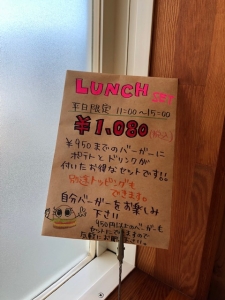 LUNCH SET
平日限定 11:00~15:00
¥1,080(税込)
¥950までのバーガーに
ポテトとドリンクが
付いたお得なセットです!!
別途トッピングも
できます。
自分バーガーをお楽しみ
下さい!!
950円以上のバーガーも
セットにできますので
気軽にお聞き下さい。